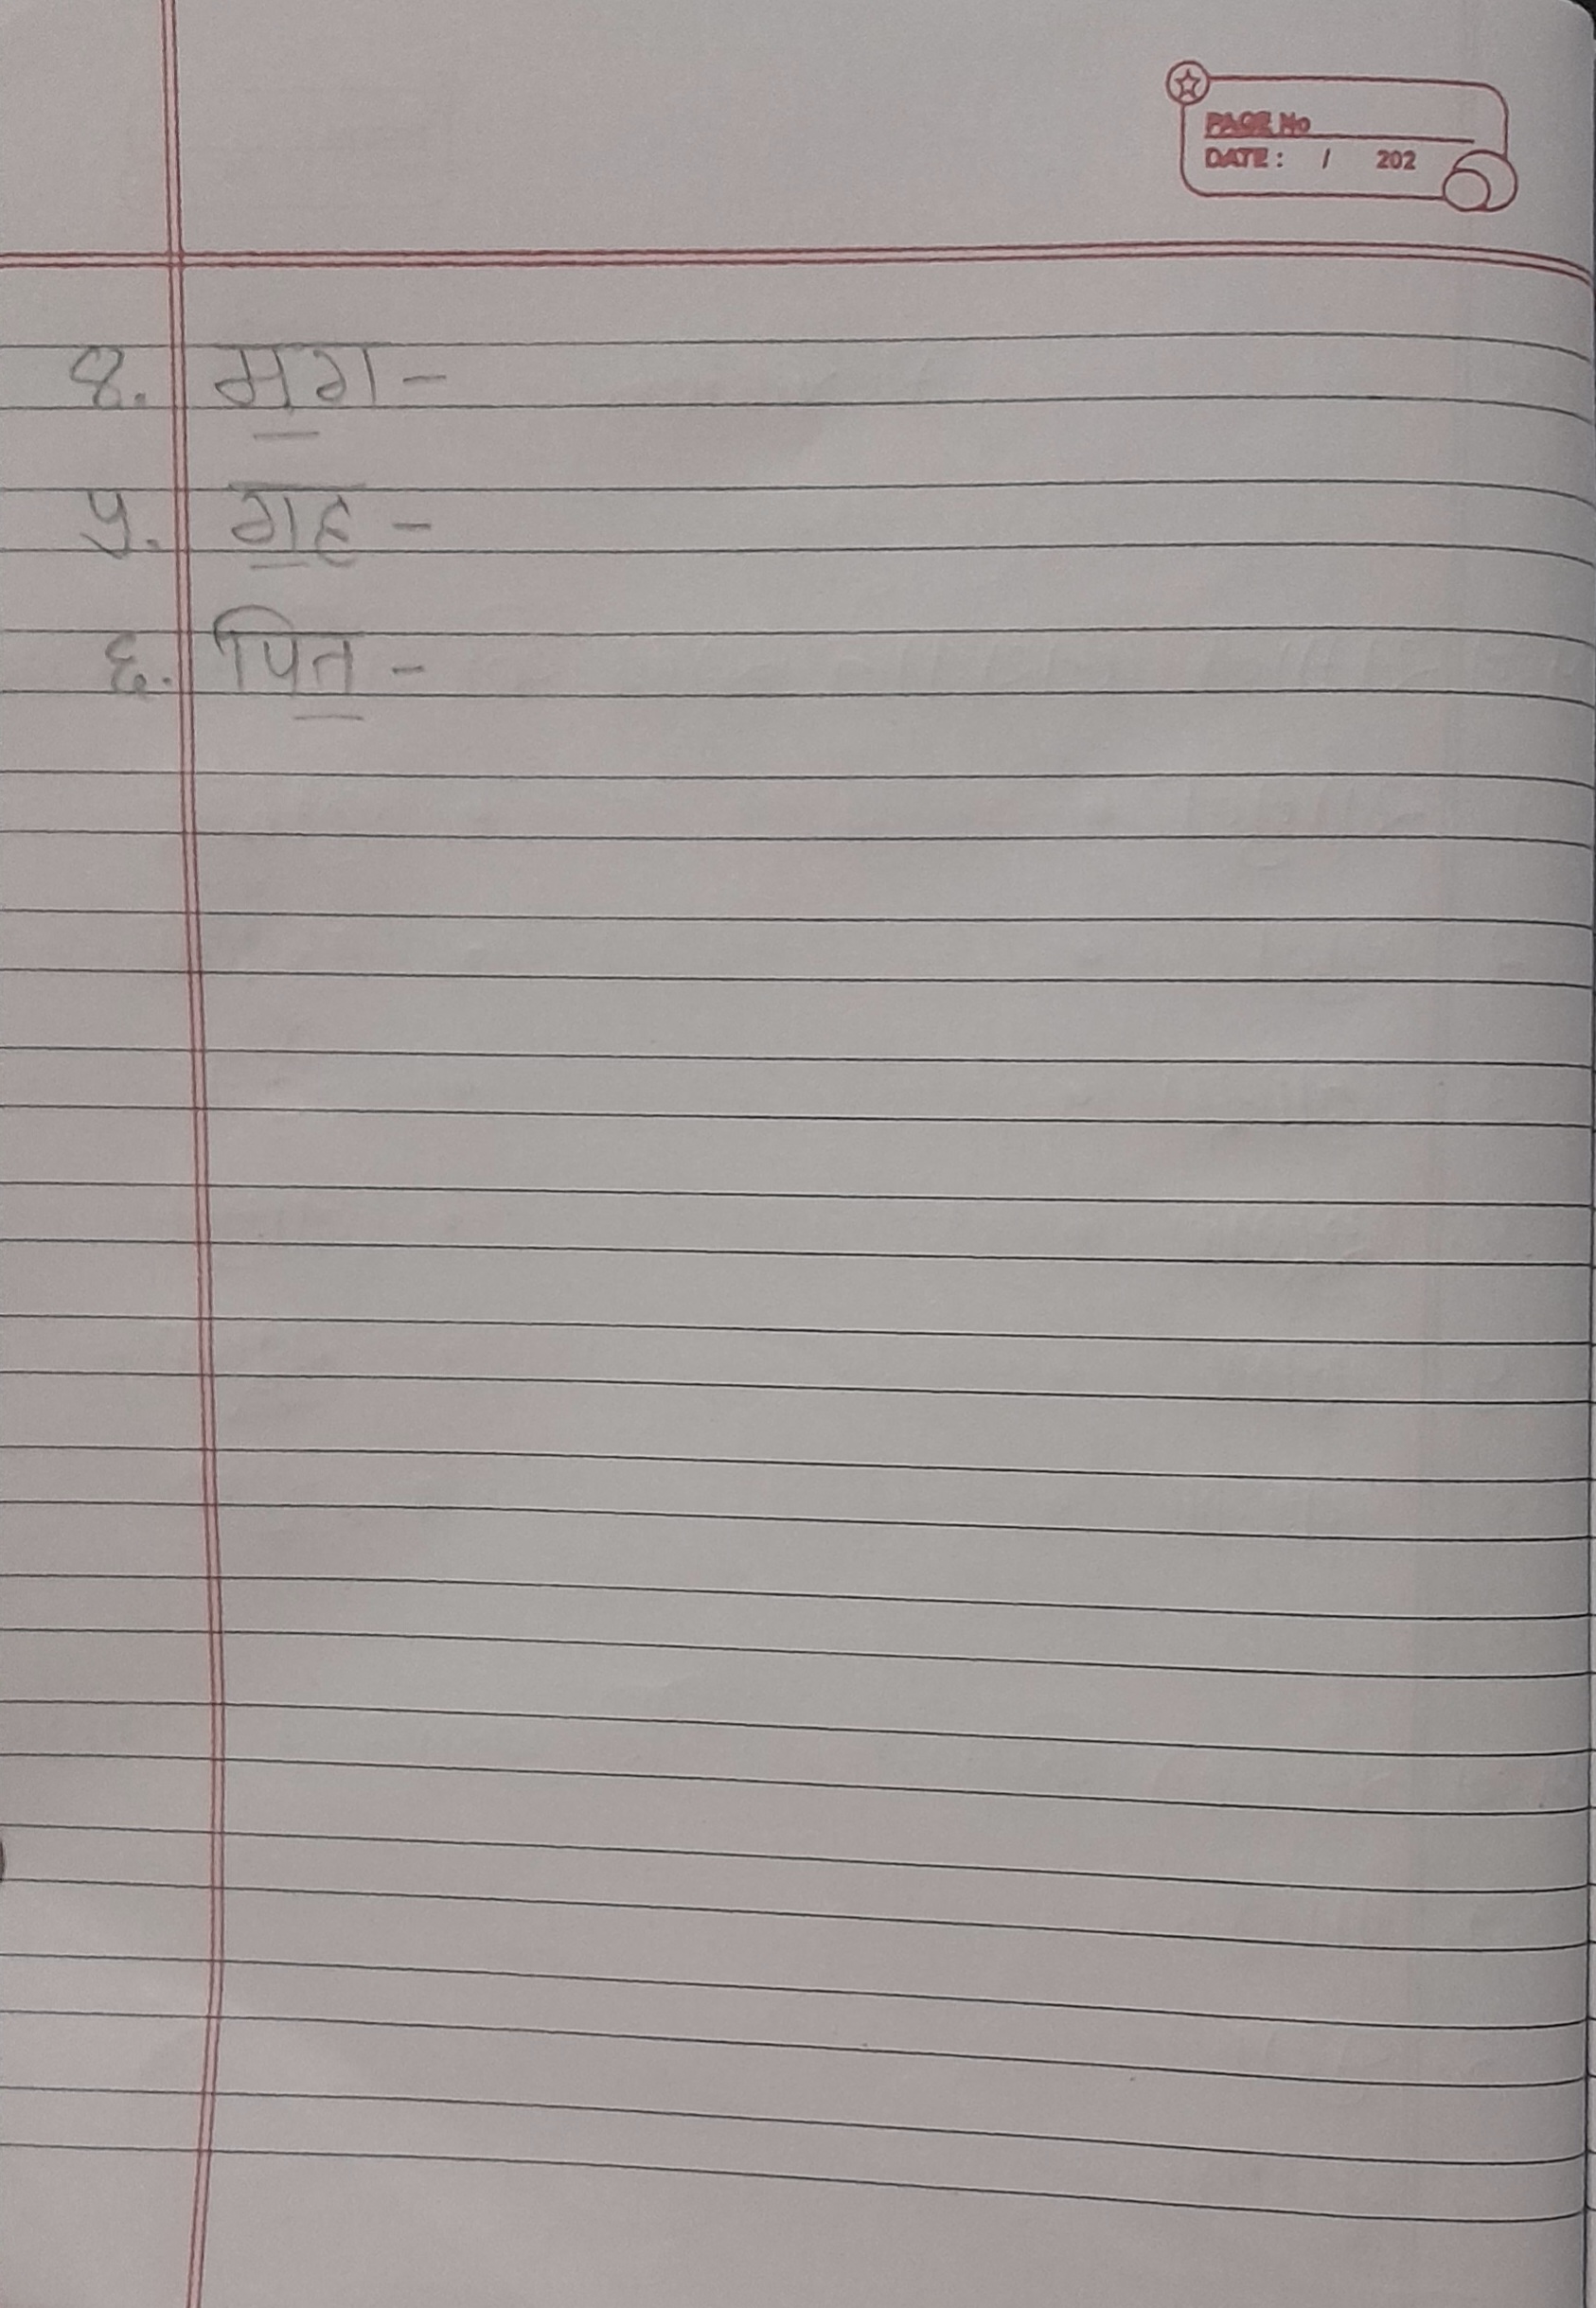 PAGE No
DATE: / 202
४. मग -
५. ग्रह -
६. पित -